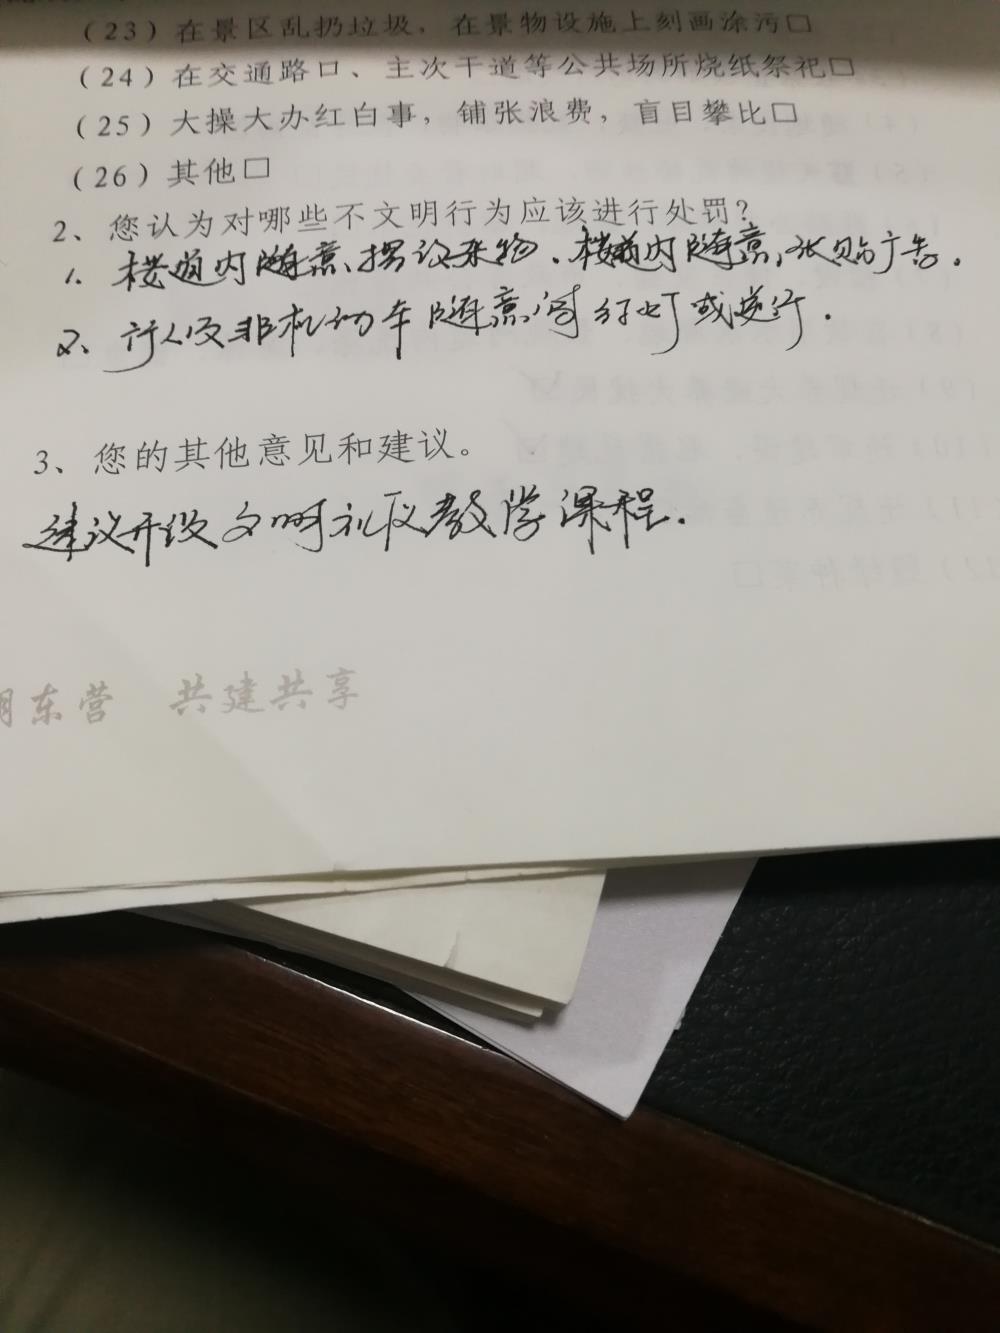 (23)在景区乱扔垃圾，在景物设施上刻画涂污□
(24)在交通路口、主次干道等公共场所烧纸祭祀□
(25)大操大办红白事，铺张浪费，盲目攀比□
(26)其他□
2、您认为对哪些不文明行为应该进行处罚？
1、楼道内随意摆设杂物、楼道内随意张贴广告.
2、行人及非机动车随意闯红灯或逆行.
3、您的其他意见和建议。
建议开设文明礼仪教学课程.
明东营 共建共享